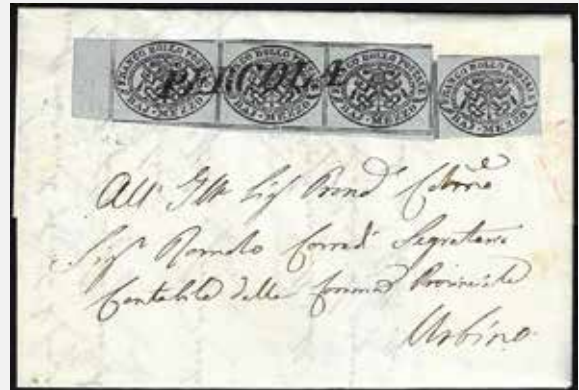 FRANCO BOLLO POSTALE BAJ-MEZZO FRANCO BOLLO POSTALE BAJ-MEZZO FRANCO BOLLO POSTALE BAJ-MEZZO FRANCO BOLLO POSTALE BAJ-MEZZO
PERGOLA
All'
Sigr Romolo Corradi Segretario
Contabile della Provinciale
Urbino